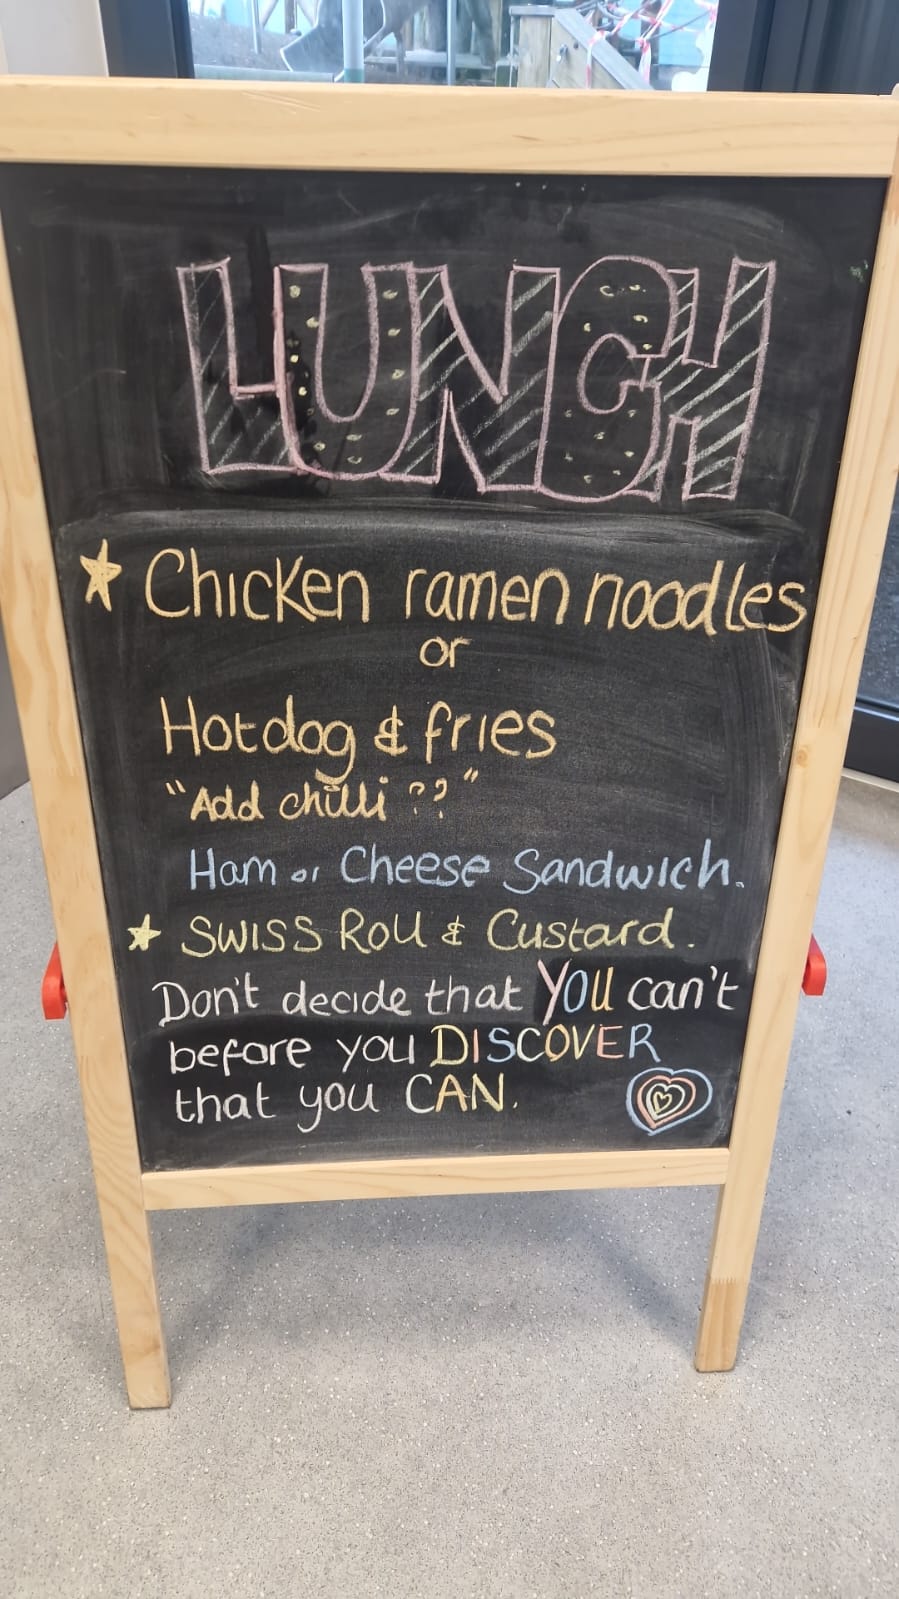 LUNCH
Chicken ramen noodles
or
Hotdog & fries
"Add chilli ??"
Ham or Cheese Sandwich.
SWISS ROLL & Custard.
Don't decide that YOU can't
before you DISCOVER
that you CAN.